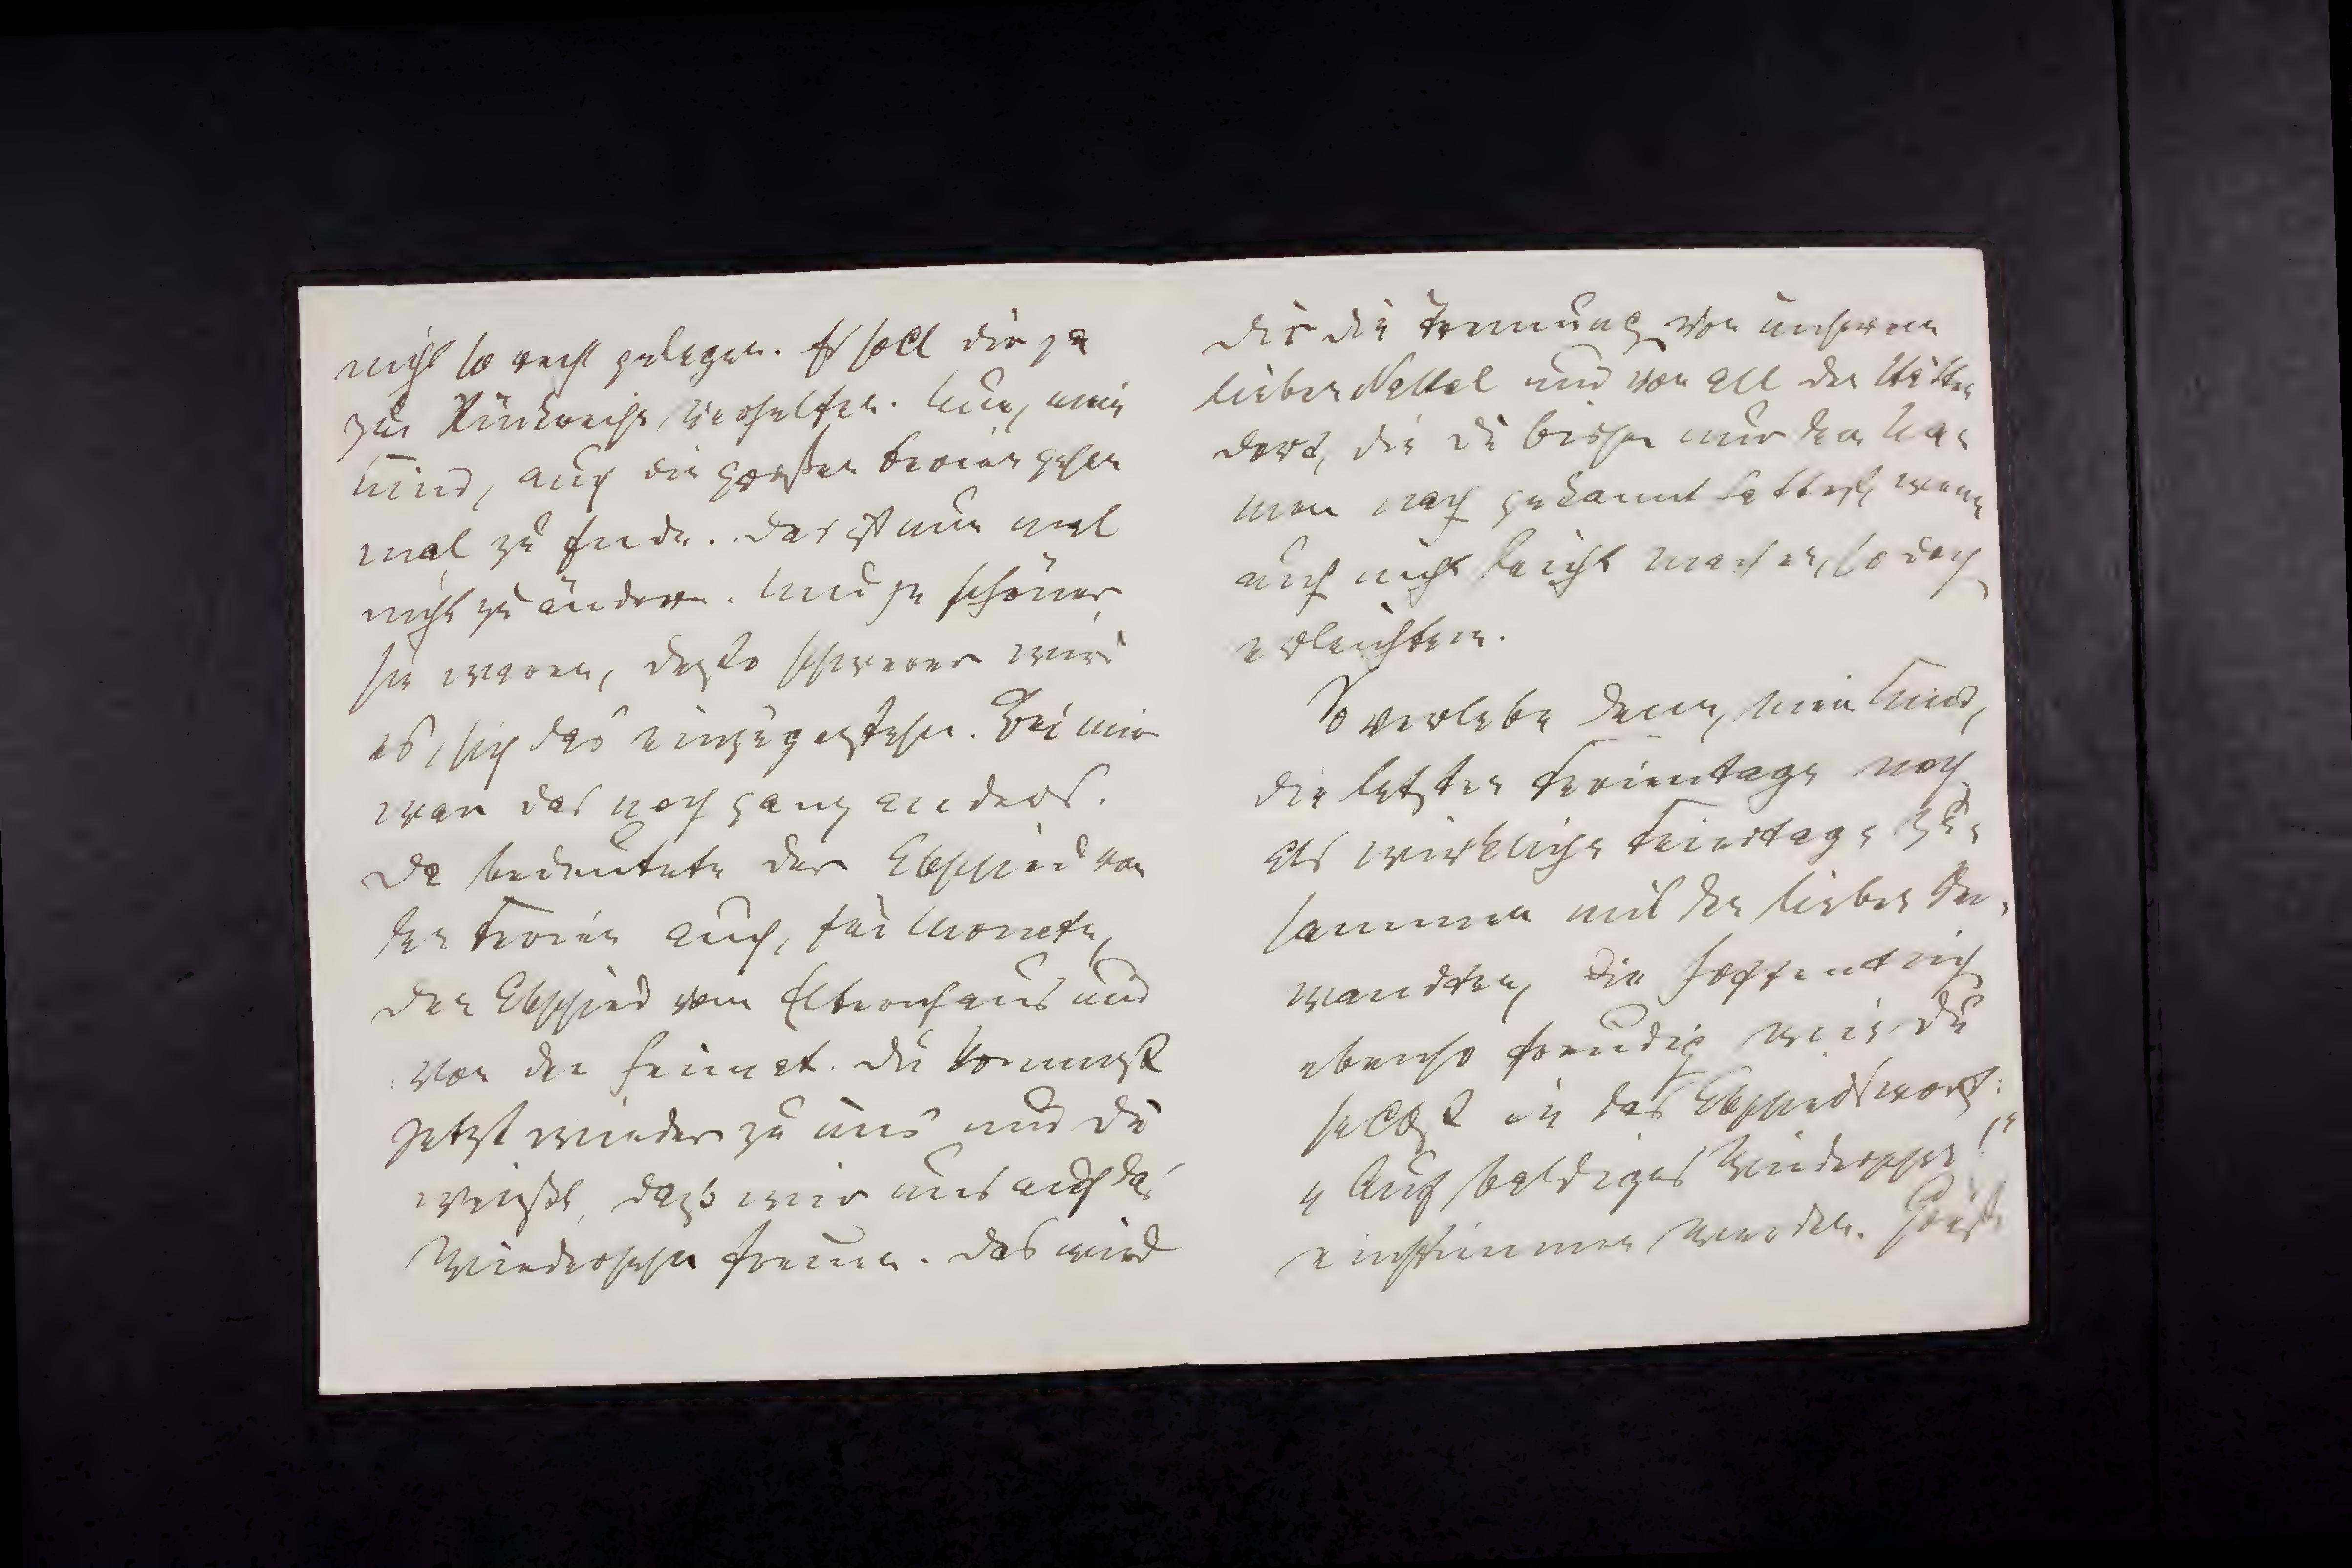 nicht so recht gelegen. Er soll dir ja
zur Rückreise verhelfen. Nun, mein
Kind, auch die großen Ferien gehen
mal zu Ende. Das ist nun mal
nicht zu ändern. Und je schöner
sie waren, desto schwerer wird
es, sich das einzugestehen. Bei mir
war das noch ganz anders.
Da bedeutete der Abschied von
den Ferien auch, für Monate,
den Abschied vom Elternhaus und
von der Heimat. Du kommst
jetzt wieder zu uns und du
weißt, dass wir uns auf das
Wiedersehen freuen. Das wird
dir die Trennung von unserem
lieben und von all den Stätten
dort, die du bisher nur dem Na-
men nach gekannt hattest, wenn
auch nicht leicht machen, so doch
erleichtern.
So verlebe denn, mein Kind,
die letzten Ferientage noch
als wirkliche Feiertage zu-
sammen mit den lieben Ver-
wandten, die hoffentlich
ebenso freudig wie du
selbst in das Abschiedswort:
„Auf baldiges Wiedersehen!“
einstimmen werden. Grüße